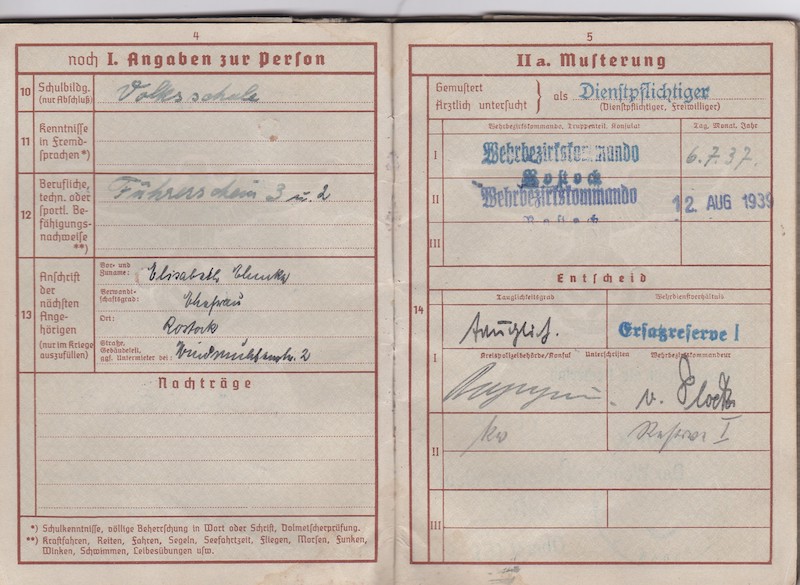 4
noch I. Angaben zur Person
10 Schulbildg. (nur Abschluß)
Volksschule
11 Kenntnisse in Fremd-sprachen *)
12 Berufliche, techn. oder sportl. Be-fähigungs-nachweise **)
Führerschein 3 u. 2
13 Anschrift der nächsten Ange-hörigen (nur im Kriege auszufüllen)
Vor- und Zuname:
Elisabeth
Verwandt-schaftsgrad:
Ehefrau
Ort:
Rostock
Straße, Gebäudeteil, ggf. Untermieter bei:
Windmühlenstr. 2
Nachträge
*) Schulkenntnisse, völlige Beherrschung in Wort oder Schrift, Dolmetscherprüfung.
**) Kraftfahren, Reiten, Fahren, Segeln, Seefahrtzeit, Fliegen, Morsen, Funken,
Winken, Schwimmen, Leibesübungen usw.
5
II a. Musterung
Gemustert
Ärztlich untersucht } als Dienstpflichtiger
(Dienstpflichtiger, Freiwilliger)
Wehrbezirkskommando, Truppenteil, Konsulat
Tag, Monat, Jahr
I
Wehrbezirkskommando
Rostock
6.7.37.
II
Wehrbezirkskommando
Rostock
12. AUG 1939
III
Entscheid
14
Tauglichkeitsgrad
Wehrdienstverhältnis
I
tauglich.
Ersatzreserve I
Kreispolizeibehörde/Konsul
Unterschriften
Wehrbezirkskommandeur
v.
II
kv
Reserve I
III